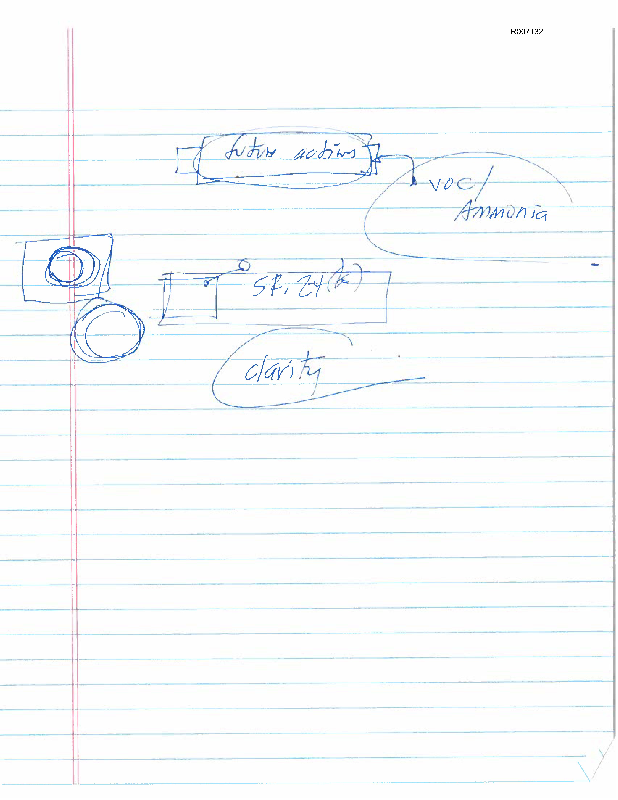 R007132
future actives
VOC/
Ammonia
clarity